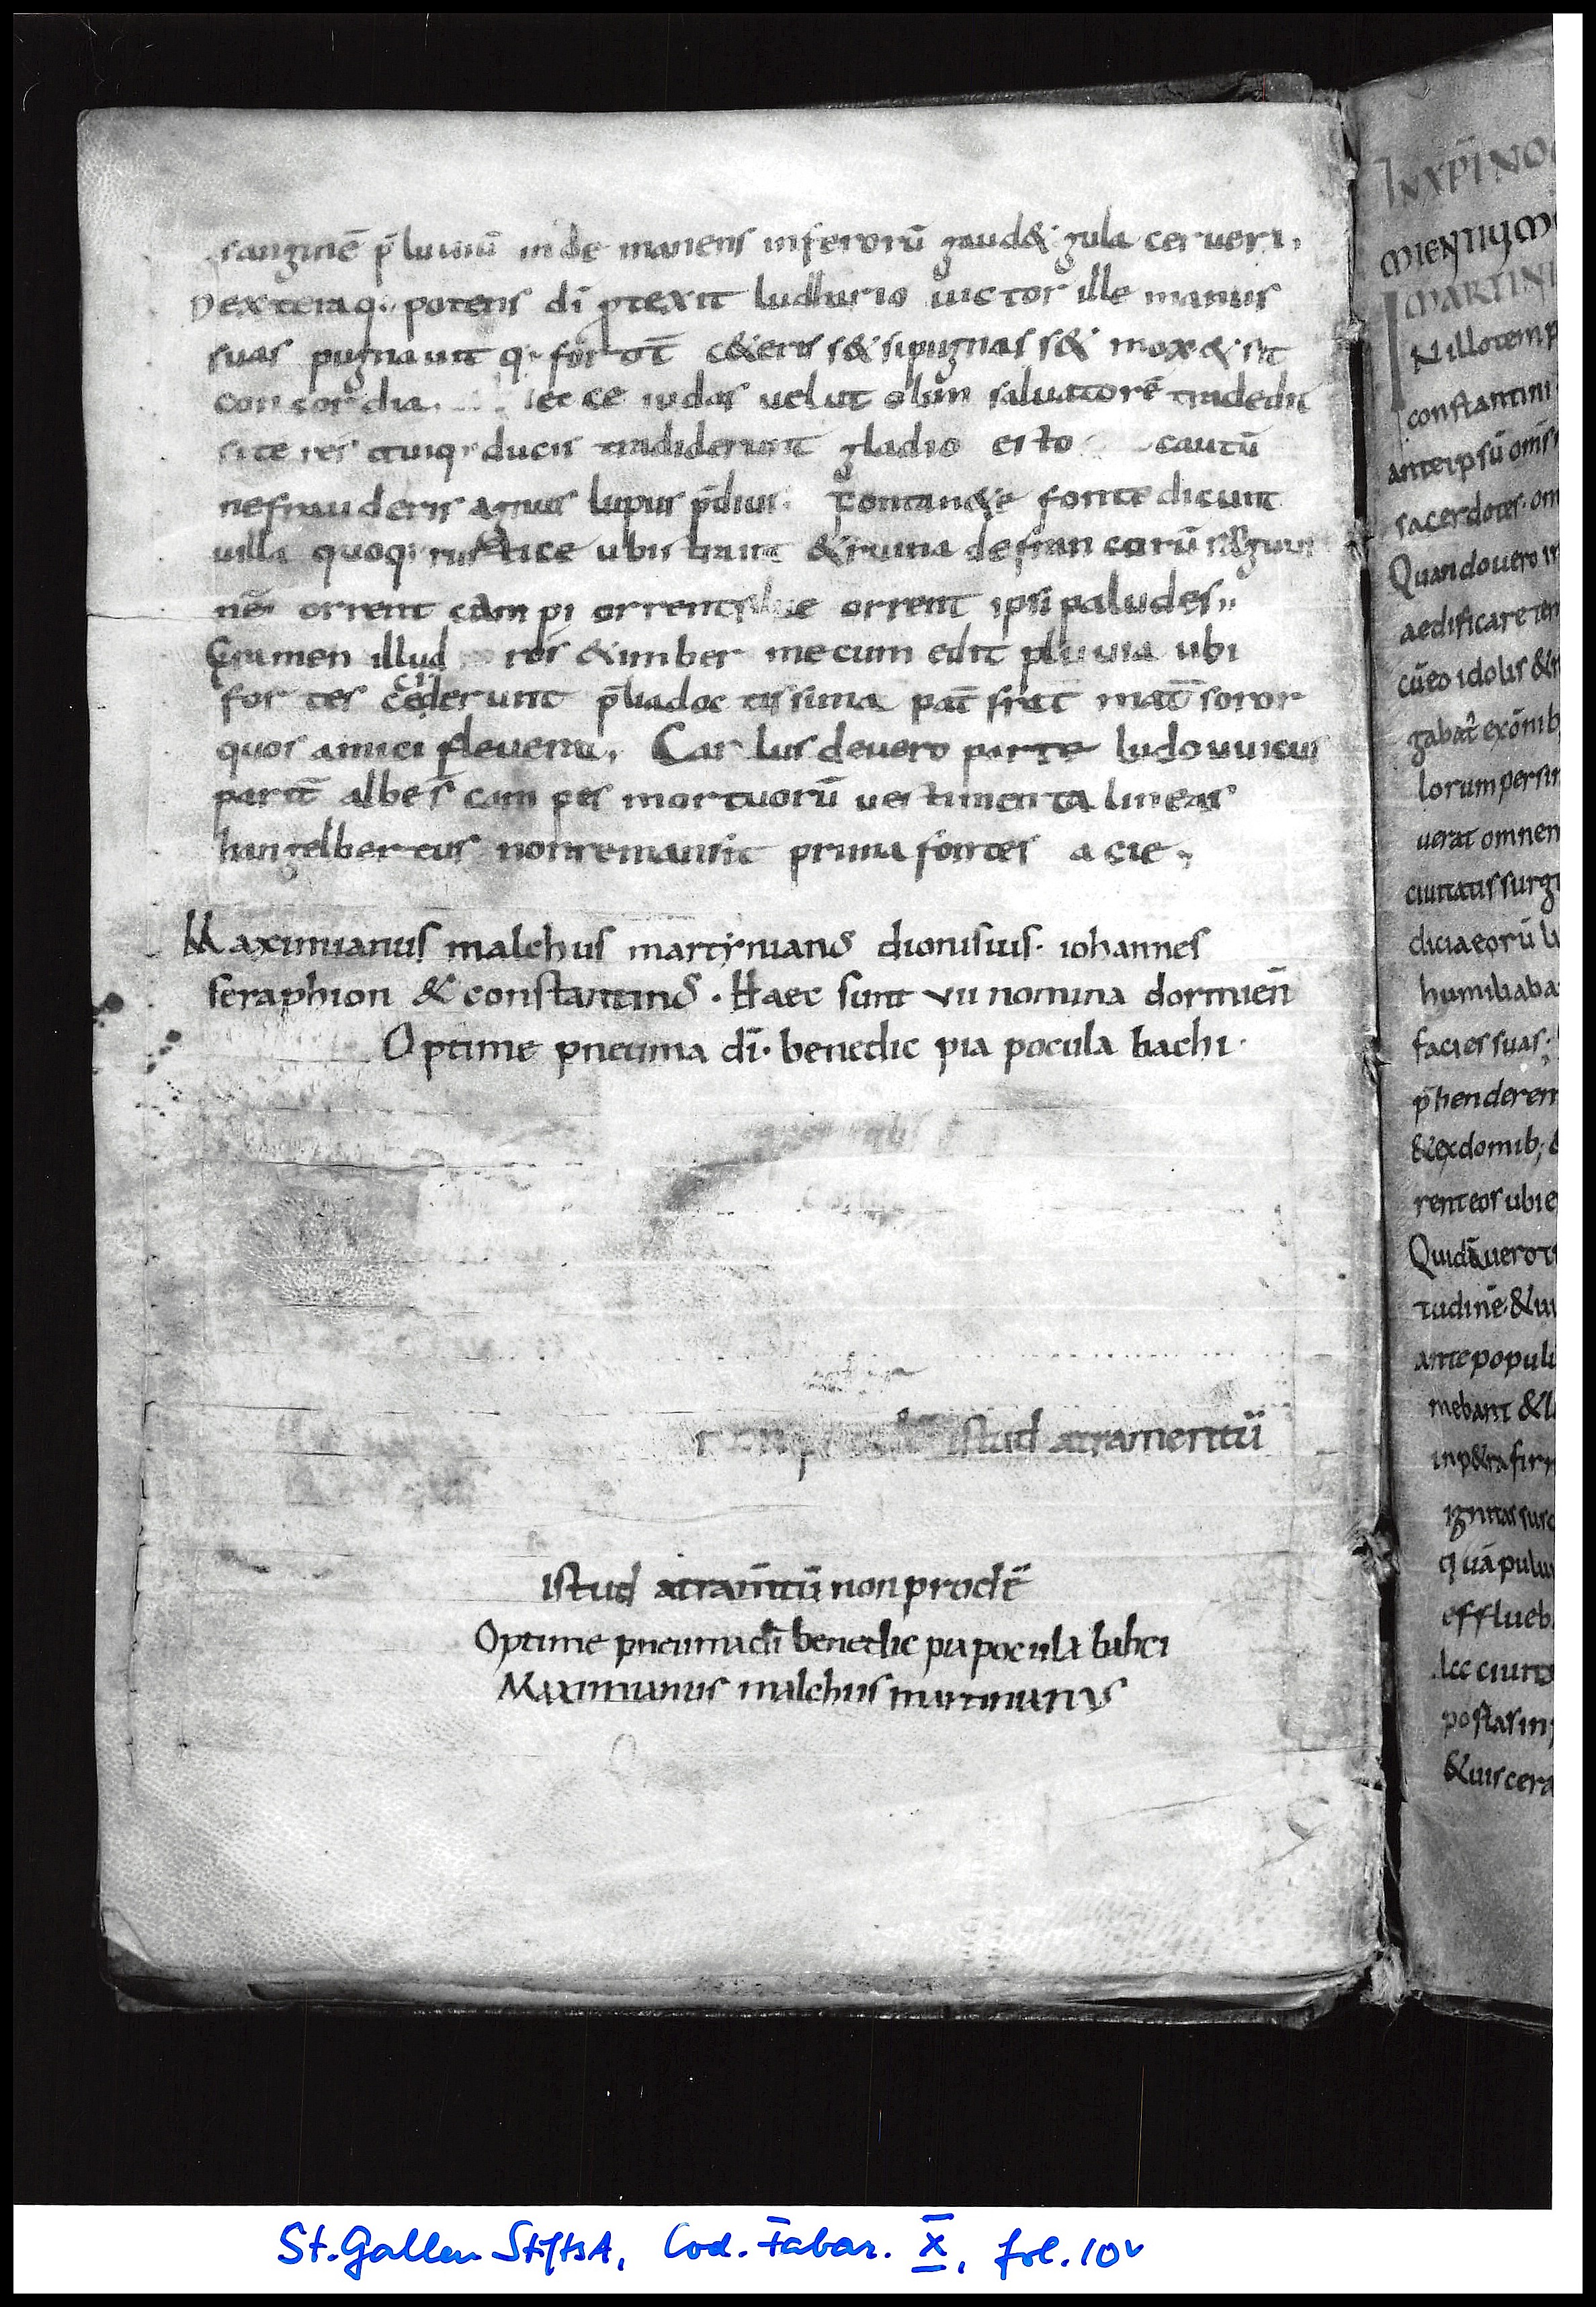 sanginē p̄luuiū inde manens inferorū gaud& gula cerueri.
Dexteraq; potens dī protexit ludhurio uictor ille manus
suas pugnauit q; fortit̄ c&eris s& si pugnas s& mox & sit
concordia. ecce iudas uelut olim saluatorē tradedit
site res tuiq; ducis tradiderunt gladio esto cautū
nefrauderis agnus lupus p̄dius. Fontan&e fonte dicunt
uilla quoq; rustice ubi strant & ruina defrancorū
nē orrent campi orrent silue orrent ipsi paludes,,
Gramen illud ros & imber mecum edit pluuia ubi
fortes cederunt p̄lia doctissima pat̄ frat̄ mat̄ soror
quos amici fleuerū. Carlus deuero parte ludouuicus
parit̄ albes̄ campes mortuorū uestimenta lineas
hangelbertus non remansit prima fontes acie.,
Maximianus malchus martynianus dionisius. iohannes
seraphion & constantinus. Haec sunt vii nomina dormien̄
Optime pneuma dī. benedic pia pocula bachi.
istud atramentū
istud atram̄tū non prodē
Optime pneuma dī benedic pia pocula bahci
Maximianus malchus martinianus
IN XP̄I NO
MIENTIUM
MARTINI
IN illo temp
constantini
ante ipsū om̄s
sacerdotes. om
Quando uero in
aedificare tem
cū eo idolis &
gabat̄ ex om̄ib
lorum persin
uerat omnem
ciuitatis surg
dicia eorū
humiliaba
facies suas.
p̄henderen
& ex domib;
rent eos ubi e
Quidā uero t
tudinē & ui
ante popul
mebant & l
in p&ra fir
ignitas sus
quā pulu
efflueb
lec ciuit
postas in
& uiscera
St. Gallen StiftsA, Cod. Fabar. X, fol. 10v